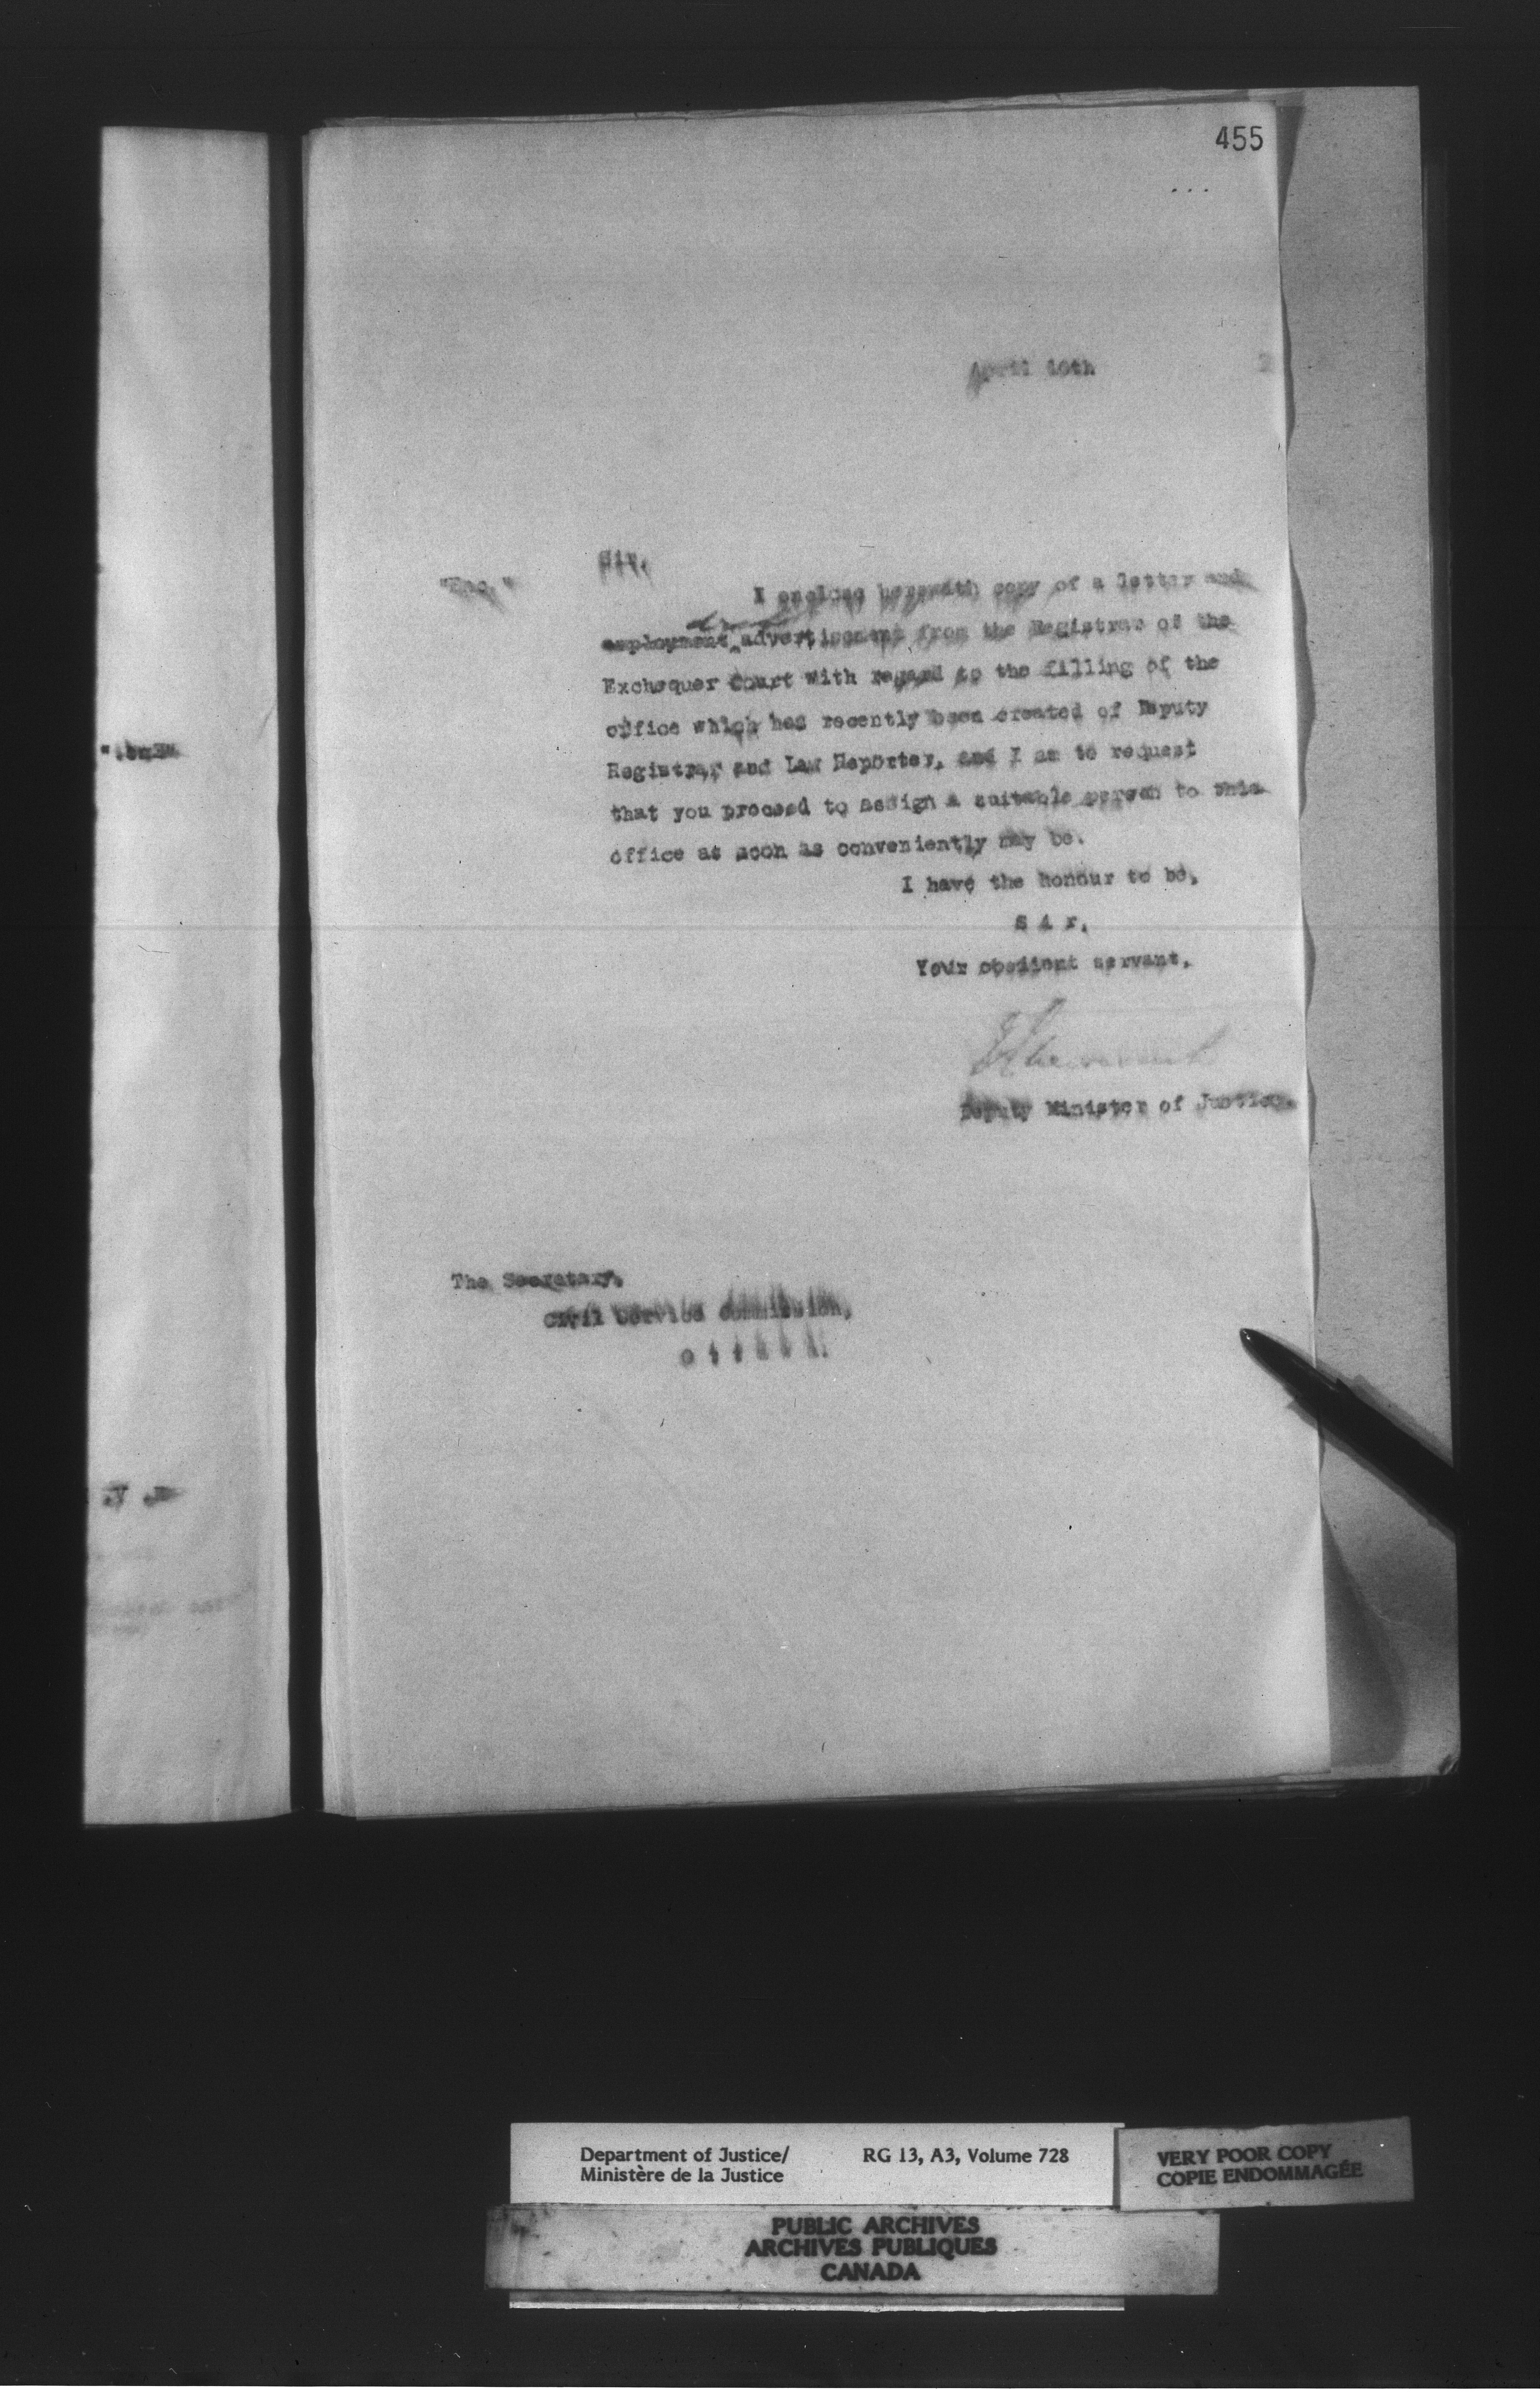 455
April 10th 2
Sir,
"Enc."
I enclose herewith copy of a letter and
draft
employment advertisement from the Registrar of the
Exchequer Court with regard to the filling of the
office which has recently been created of Deputy
Registrar and Law Reporter, and I am to request
that you proceed to assign a suitable person to this
office as soon as conveniently may be.
I have the honour to be,
S i r,
Your obedient servant,
Deputy Minister of Justice.
The Secretary,
Civil Service Commission,
O t t a w a.
Department of Justice/
Ministère de la Justice
RG 13, A3, Volume 728
VERY POOR COPY
COPIE ENDOMMAGÉE
PUBLIC ARCHIVES
ARCHIVES PUBLIQUES
CANADA